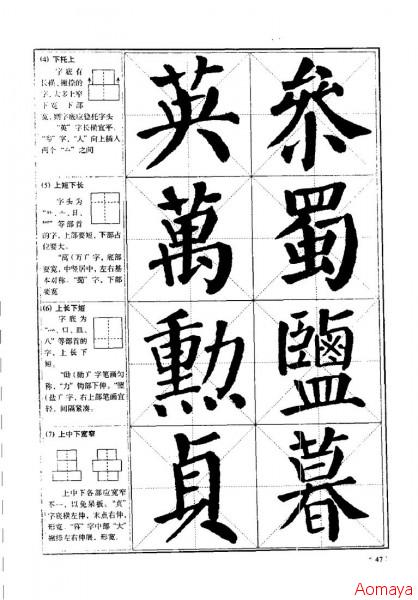 (4) 下托上
字底有
长横、撇捺的
字，大多上窄
下宽，下部
宽，则字底应稳托字头
"英"字长横宜平，
字，"人"向上插入
两个"厶"之间
英
参
(5) 上短下长
字头为
等部首
的字，上部要短，下部占
位要大。
"萬(万)"字，底部
要宽，中竖居中，左右基
本对称。"蜀"字，下部
要宽
萬
蜀
(6) 上长下短
字底为
"灬、口、皿、
八"等部首的
字，上长下
短。
"勛(勋)"字笔画匀
称，"力"钩部下伸。"鹽
(盐)"字，右上部笔画宜
轻，间隔紧凑。
勲
鹽
(7) 上中下宽窄
上中下各部应宽窄
不一，以免呆板。"贞"
字底横左伸，末点右伸，
形宽。字中部"大"
撇捺左右伸展，形宽。
貞
暮
47
Aomaya